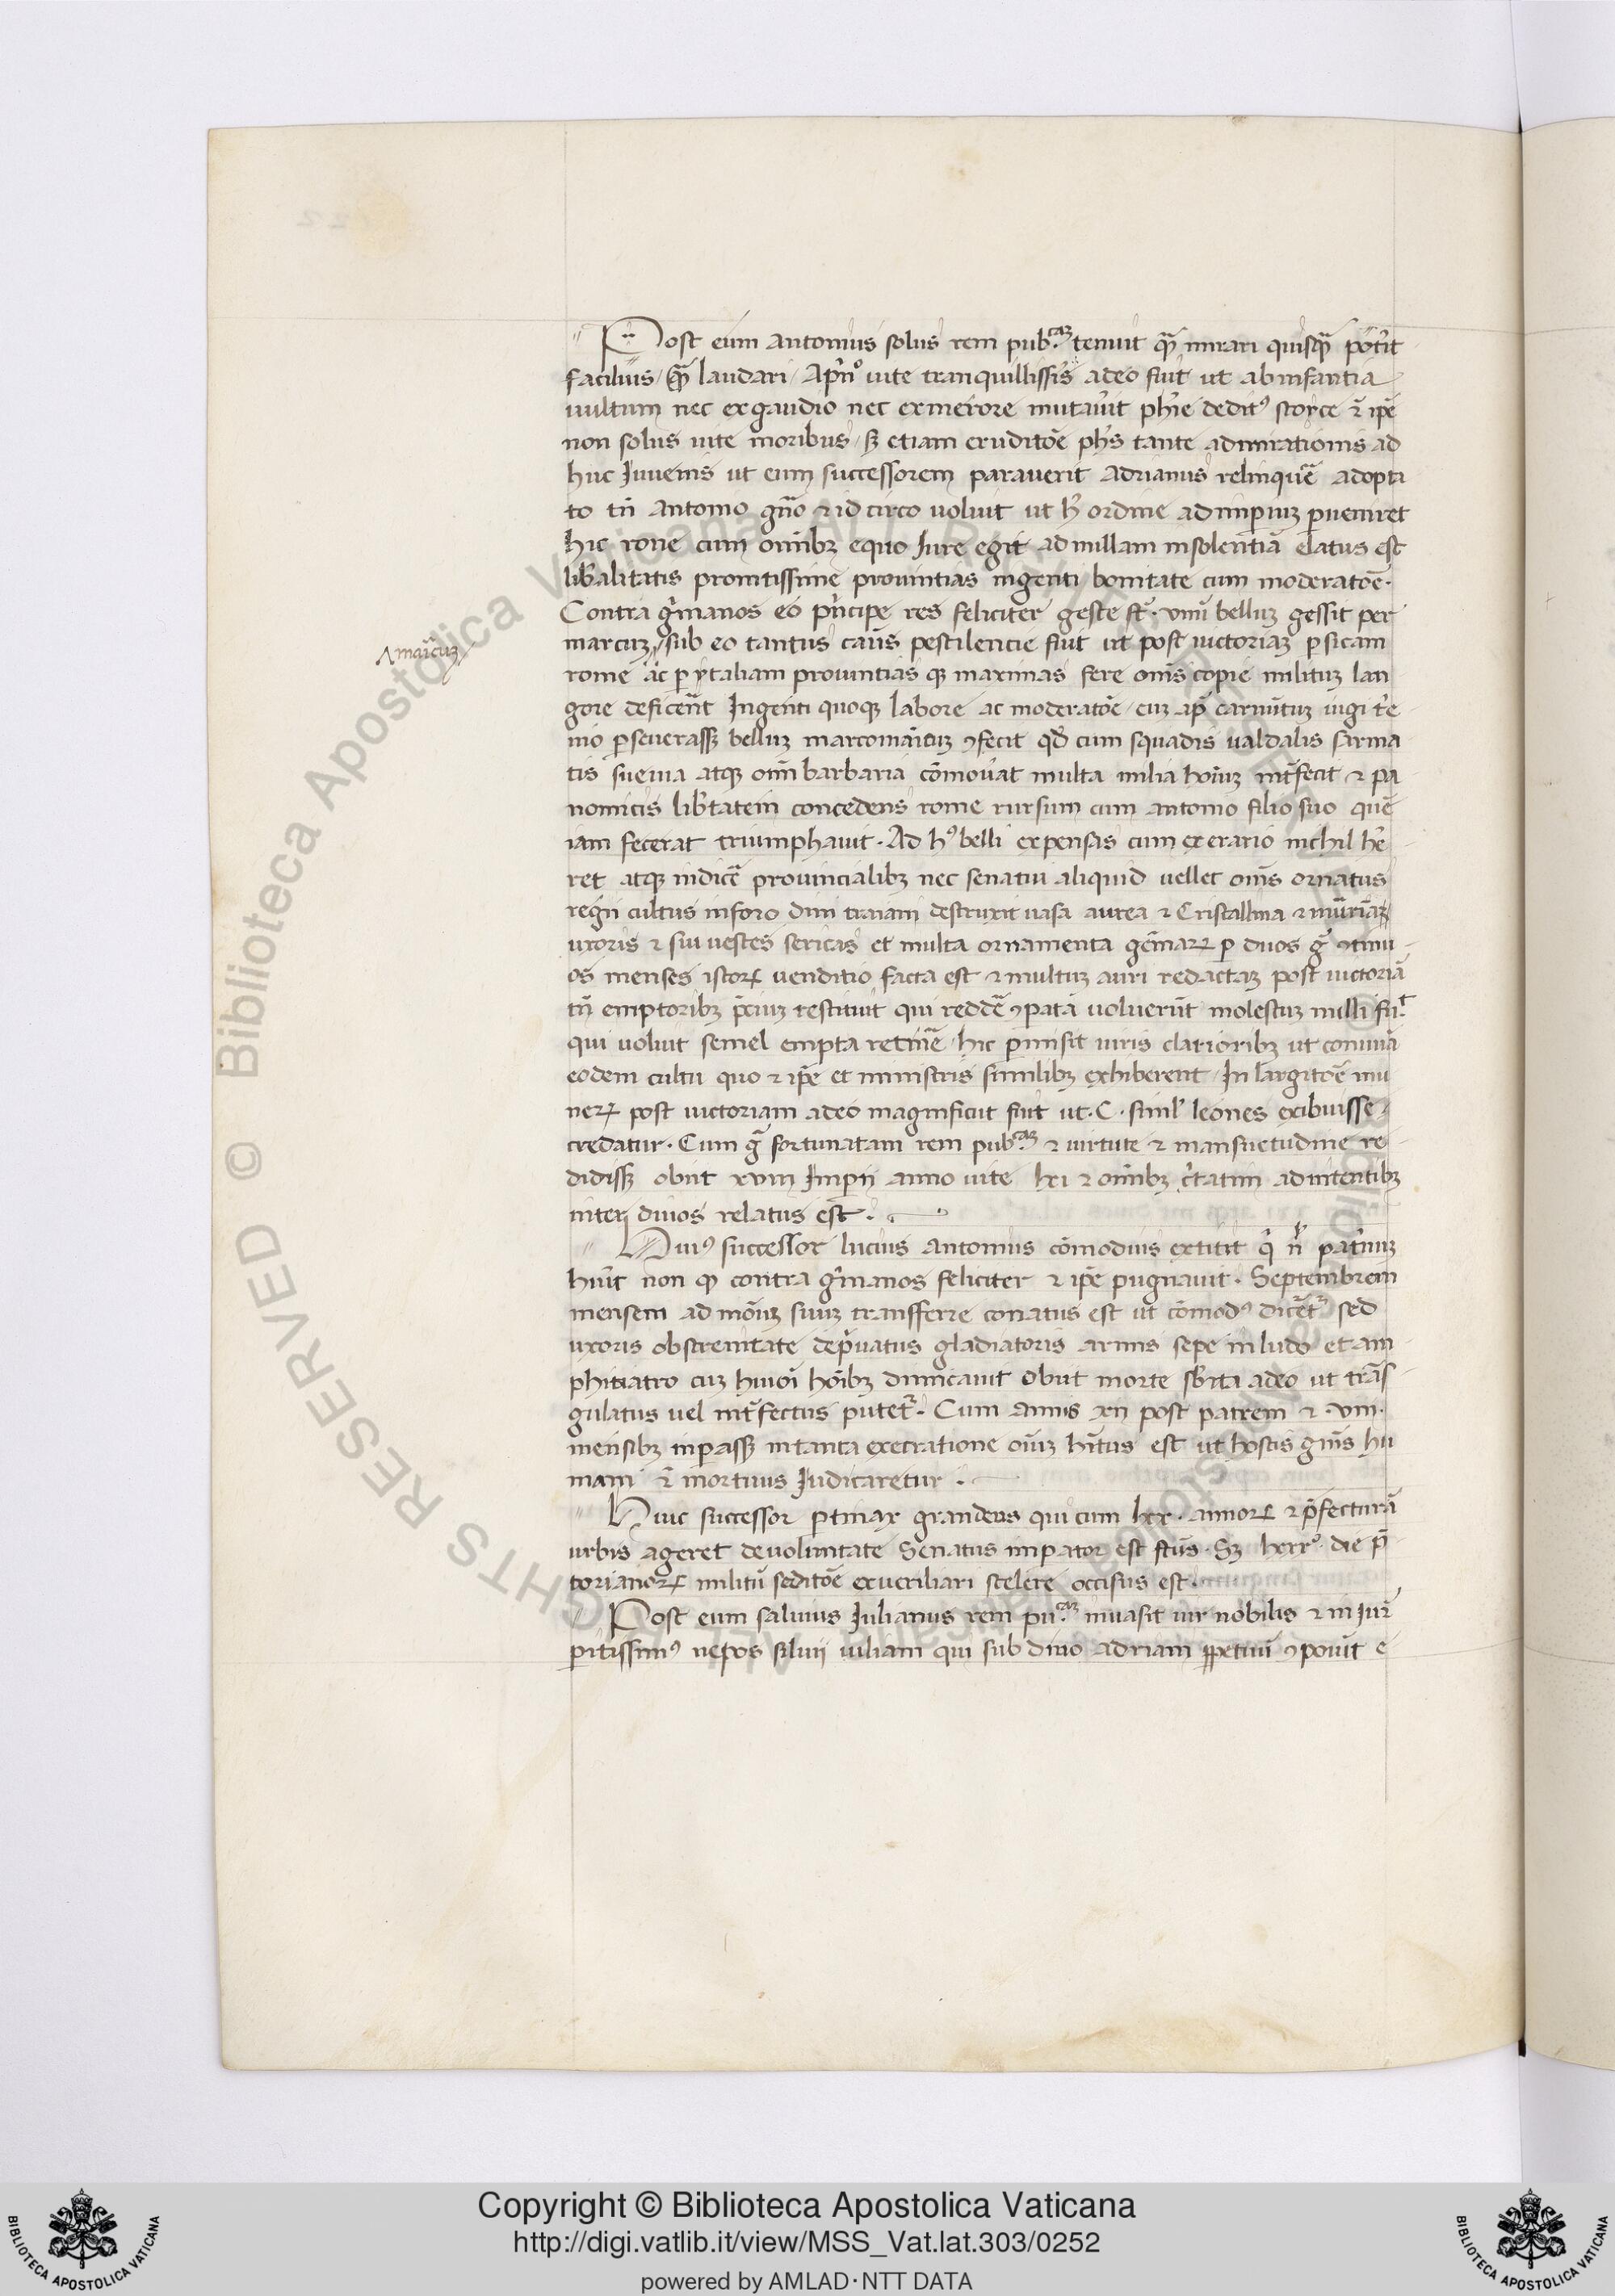 Post eum antonius solus rem pub.caꝫ tenuit qm̄ mirari quisq̄ȝ potit
facilius / q̄ȝ laudari / Aprin° uite tranquillissis adeo fuit ut ab infantia
uultum nec ex gaudio nec ex merore mutauit phie dedit᾿ stoyce ⁊ ipē
non solus uite moribus / sȝ etiam eruditōe phs tante admirationis ad
huc Iuuenis ut eum successorem parauerit adrianus relinquē adopta
to tn̄ antonio gn̄o ⁊ id circo uoluit ut h ordine ad imperiuȝ perueniret
hic rone cum omibȝ equo Iure egit ad nullam insolentiā elatus est
libalitatis promtissime prouintias ingenti bonitate cum moderatōe.
Contra gmanos eo pncipe res feliciter geste st̄. vnū belluȝ gessit per
marcuȝ / sub eo tantus caus̄ pestilencie fuit ut post uictoriaȝ persicam
rome ac per ytaliam prouintias qȝ maximas fere om̄s copie milituȝ lan
gore deficērt Ingenti quoqȝ labore ac moderatōe / cuȝ ap̄ carnūtuȝ iugi t'e
nio perseuerassȝ belluȝ marcomaicuȝ ꝯfecit qd̄ cum squadis ualdalis sarma
tis sueuia atqȝ om̄i barbaria cōmouat multa milia hoīuȝ int̄fecit ⁊ pa
nonicis libtatem concedens rome rursum cum antonio filio suo quē
iam fecerat triumphauit. Ad h᾿ belli expensas cum ex erario nichil he
ret atqȝ indicē prouincialibȝ nec senatui aliquid uellet om̄s ornatus
regii cultus in foro diui traiani destruxit uasa aurea ⁊ Cristallina ⁊ murīaȝ
uxoris ⁊ sui uestes sericas et multa ornamenta gēmarꝝ per duos g̃ ꝯtinu
os menses istorꝝ uenditio facta est ⁊ multuȝ auri redactaȝ post uictoriā
tn̄ emptoribȝ p̄ciuȝ restituit qui reddē ꝯpata uoluerūt molestuȝ nulli fu.t
qui uoluit semel empta retinē / hic permisit uiris clarioribȝ ut conuiuia
eodem cultu quo ⁊ ipē et ministris similibȝ exhiberent / In largitōe mu
nerꝝ post uictoriam adeo magnificut fuit ut. C. simlʼ leones exibuisse
credatur. Cum g̃ fortunatam rem pub.caꝫ ⁊ uirtute ⁊ mansuetudine re
didissȝ obiit xviii Imperii anno uite lxi ⁊ omībȝ c̄tatim ad nitentibȝ
inter diuos relatus est.
Huiʼ successor lucius antonius cōmodius extitit q̄ n̄ patnuȝ
huit non qȝ contra gmanos feliciter ⁊ ipē pugnauit. Septembrem
mensem ad nōiuȝ suuȝ transferre conatus est ut cōmod᾿ dicet sed
uxoris obscenitate dep̄uatus gladiatoris armis sepe in ludo et am
phitiatro cuȝ huiōi hoībȝ dimicauit Obiit morte sbita adeo ut trās
gulatus uel int̄fectus putet̄. Cum annis xii post patrem ⁊. viii.
mensibȝ inperassȝ in tanta execratione oīuȝ hītus est ut hostis gnis hu
mani ⁊ mortuus Iudicaretur.
Huic successor pertinax grandeus qui cum lxx. annorꝝ ⁊ p̄fecturā
urbis ageret de uoluntate Senatus imperator est fcūs. Sȝ lxxx°. die p̄
torianorꝝ militū seditōe ex uerciliari scelere occisus est.
Post eum saluius Iulianus rem pu.caꝫ inuasit uir nobilis ⁊ in iur̄
peritissim᾿ nepos siluij iuliani qui sub diuo adriani ꝑpetuū ꝯpouit e
^maicuȝ
Copyright © Biblioteca Apostolica Vaticana
http://digi.vatlib.it/view/MSS_Vat.lat.303/0252
powered by AMLAD·NTT DATA
BIBLIOTECA APOSTOLICA VATICANA
BIBLIOTECA APOSTOLICA VATICANA
© Biblioteca Apostolica Vaticana ALL RIGHTS RESERVED